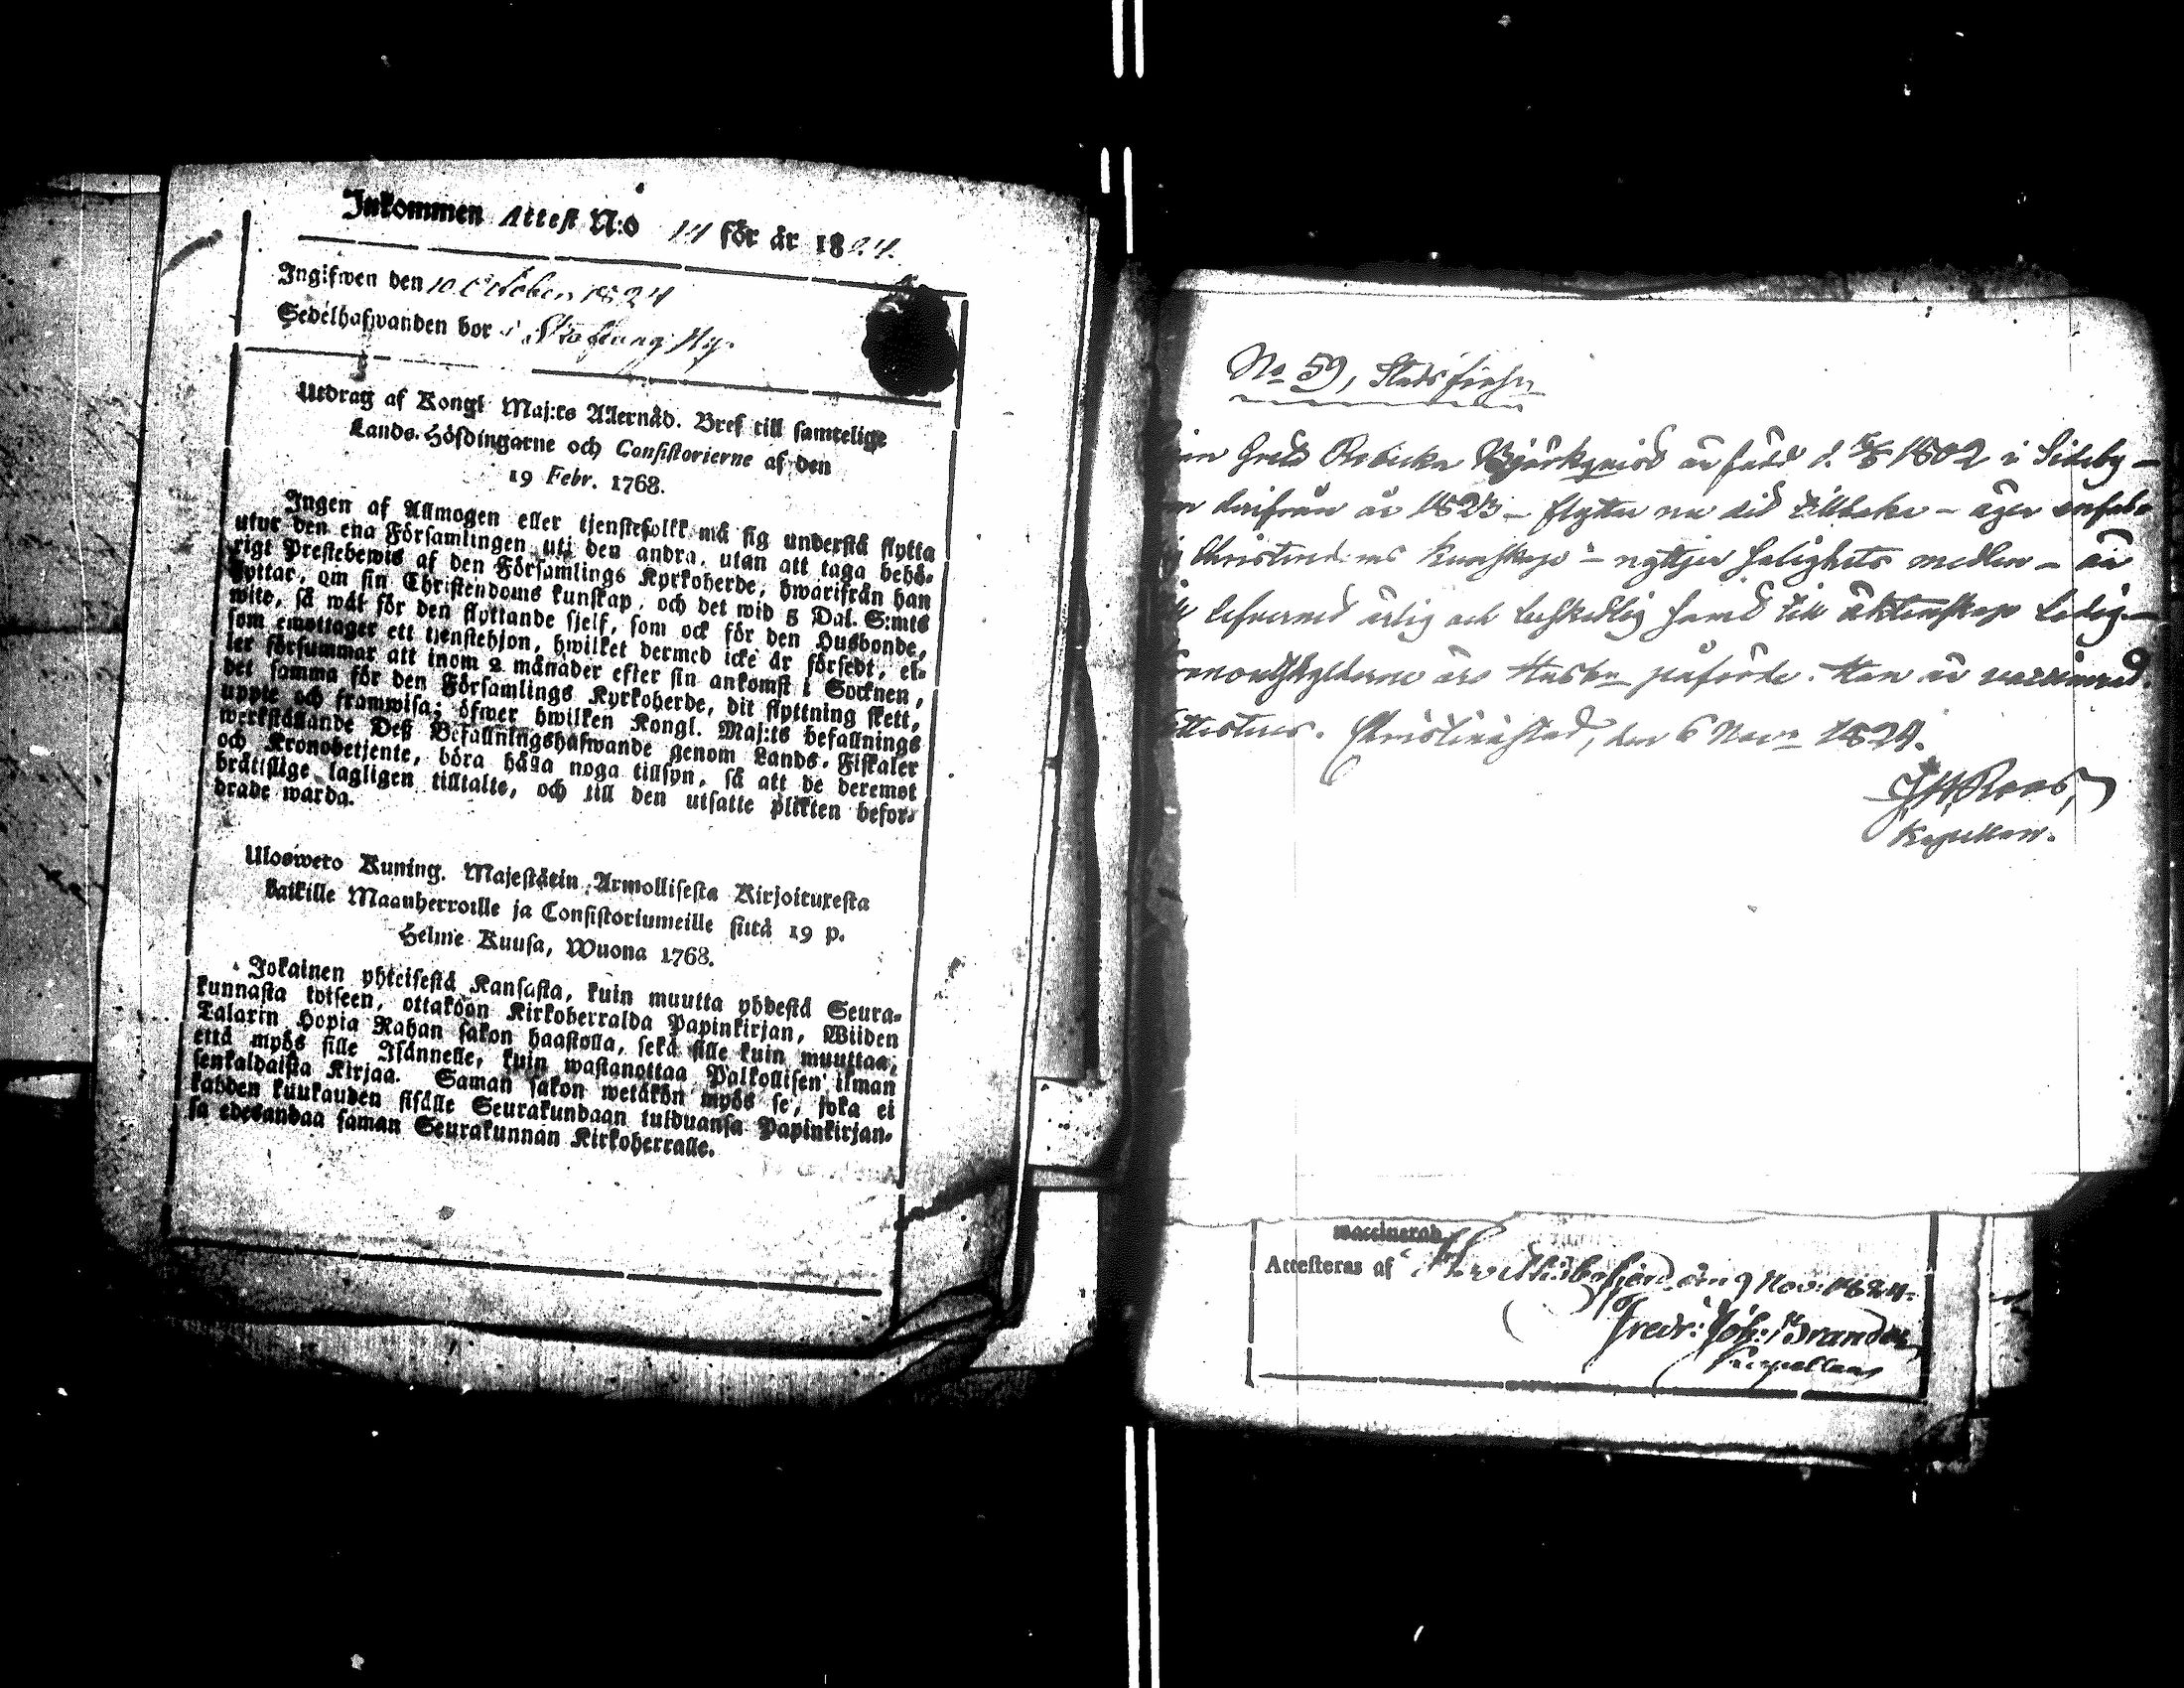 Inkommen Attest N:o 14 för år 1824.
Ingifwen den 10 October 1824
Sedelhafwanden bor i
Utdrag af Kongl Maj:ts Allernåd. Bref till samtelige
Lands-Höfdingarne och Consistorierne af den
19 Febr. 1768.
Ingen af Allmogen eller tjenstefolkk må sig understå flytta
utur den ena Församlingen uti den andra, utan att taga behö-
rigt Prestebewis af den Församlings Kyrkoherde, hwarifrån han
flyttar, om sin Christendoms kunskap, och det wid 5 Dal. S:mts
wite, så wäl för den flyttande sjelf, som ock för den Husbonde,
som emottager ett tjenstehjon, hwilket dermed icke är försedt, el-
ler försummar att inom 2 månader efter sin ankomst i Socknen,
det samma för den Församlings Kyrkoherde, dit flyttning skett,
uppte och framwisa; öfwer hwilken Kongl. Maj:ts befallnings
werkställande Deß Befallningshafwande genom Lands-Fiskaler
och Kronobetjente, böra hålla noga tillsyn, så att de deremot
brätslige lagligen tilltalte, och till den utsatte plikten befor-
drade warda.
Uloswero Kuning. Majestätin Armollisesta Kirjoituxesta
kaikille Maanherroille ja Consistoriumeille siitä 19 p.
Helme Kuusa, Wuona 1768.
Jokainen yhteisestä Kansasta, kuin muutta yhdestä Seura-
kunnasta toiseen, ottakoon Kirkoherralda Papinkirjan, Wiiden
Talarin Hopia Rahan sakon haastolla, sekä sille kuin muuttaa,
että myös sille Isännelle, kuin wastanottaa Palkollisen ilman
senkaldaista Kirjaa. Saman sakon wetäkön myös se, joka ei
kahden kuukauden sisälle Seurakundaan tulduansa Papinkirjan-
sa edesandaa saman Seurakunnan Kirkoherralle.
No 59,
Greta Rebecka Björkqvist är född d. 1802 i Sideby -
derifrån år 1823 - flyttar nu dit tillbaka - äger enfal-
Christendoms kunskap - nyttjar salighets medlen - är
lefverned ärlig och beskedlig samt till äktenskap ledig -
äro påförde. Hon är vaccinerad.
Christinestad, den 6 Nov. 1824.
J H Roos,
Kapellan.
vaccinerad
Attesteras af den 9 Nov: 1824.
Fredr: Joh: Brander
Capellan